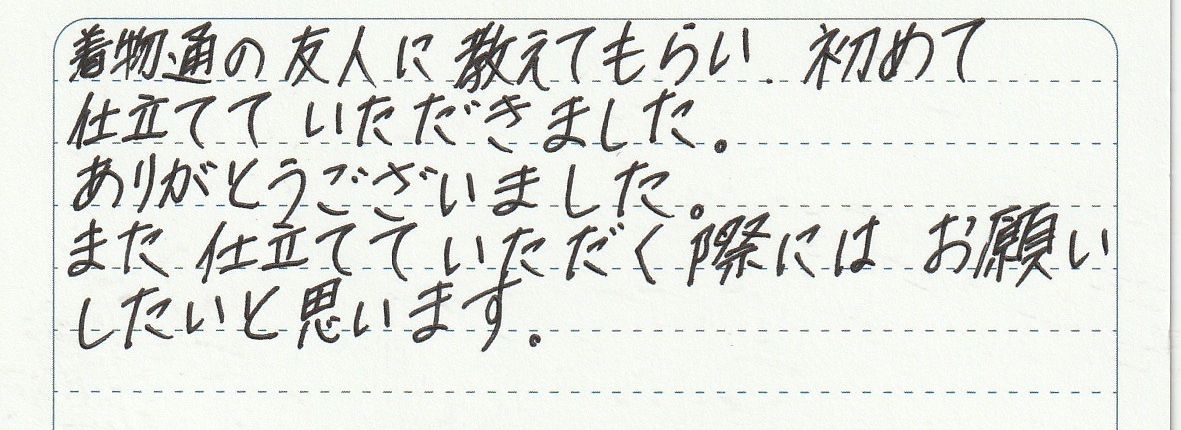 着物通の友人に教えてもらい、初めて
仕立てていただきました。
ありがとうございました。
また仕立てていただく際には お願い
したいと思います。